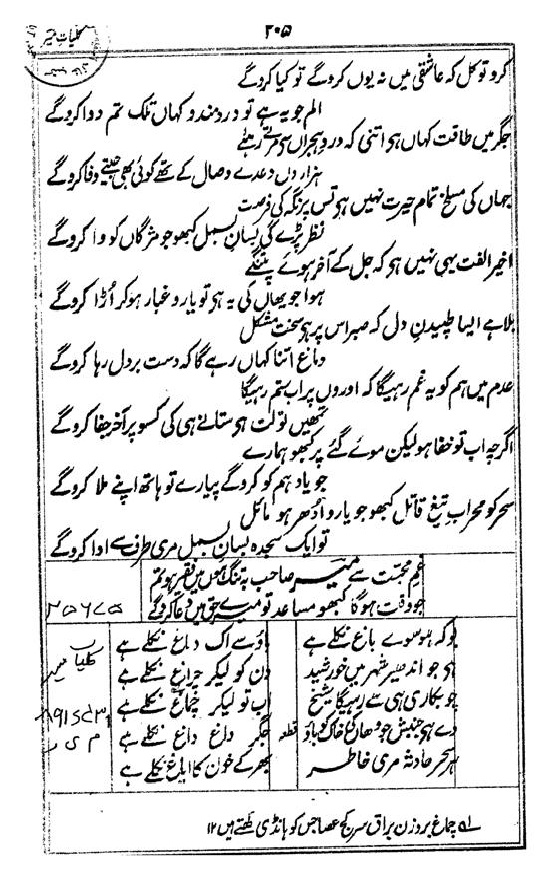 ۲۰۵
کلیات میر
کرو توکل کہ عاشقی میں نہ یوں کروگے تو کیا کروگے
الم جو یہ ہے تو دردمندو کہاں تلک تم دوا کروگے
جگر میں طاقت کہاں ہی اتنی کہ درد ہجراں سی مرتے رہئے
ہزاروں وعدے وصال کے تھے کوئی بھی جیتے وفا کروگے
جہاں کی مسلخ تمام حیرت نہیں ہی تس پر نگہ کی فرصت
نظر پڑے گی بسان بسمل کبھو جو مژگاں کو وا کروگے
اخیر الفت یہی نہیں ہی کہ جل کے آخر ہوئے پتنگے
ہوا جو یھاں کی یہ ہی تو یارو غبار ہوکر اڑا کروگے
بلا ہے ایسا طپیدن دل کہ صبر اس پر ہی سخت مشکل
دماغ اتنا کہاں رہے گا کہ دست بر دل رہا کروگے
عدم میں ہم کو یہ غم رہیگا کہ اوروں پر اب ستم رہیگا
تمھیں تو لت ہی ستانے ہی کی کسو پر آخر جفا کروگے
اگرچہ اب تو خفا ہو لیکن موئے گئے پر کبھو ہمارے
جو یاد ہم کو کروگے پیارے تو ہاتھ اپنے ملا کروگے
سحر کو محراب تیغ قاتل کبھو جو یارو ادھر ہو مائل
تو ایک سجدہ بسان بسمل مری طرف سے ادا کروگے
غم محبت سے میر صاحب بتنگ ہوں میں فقیر ہو تم
جو وقت ہوگا کبھو مساعد تو میرے حق میں دعا کروگے
بو کہ ہو سوے باغ نکلے ہے باؤ سے اک دماغ نکلے ہے
ہی جو اندھیر شہر میں خورشید دن کو لیکر چراغ نکلے ہے
چوبکاری ہی سے رہیگا شیخ اب تو لیکر چماغ نکلے ہے
دے ہی جنبش جو وھاں کی خاک کو باؤ قطعہ جگر داغ داغ نکلے ہے
ہر سحر حادثہ مری خاطر بھر کے خون کا ایاغ نکلے ہے
چماغ بروزن براق سر کج عصا جس کو ہانڈی کہتے ہیں ۱۲